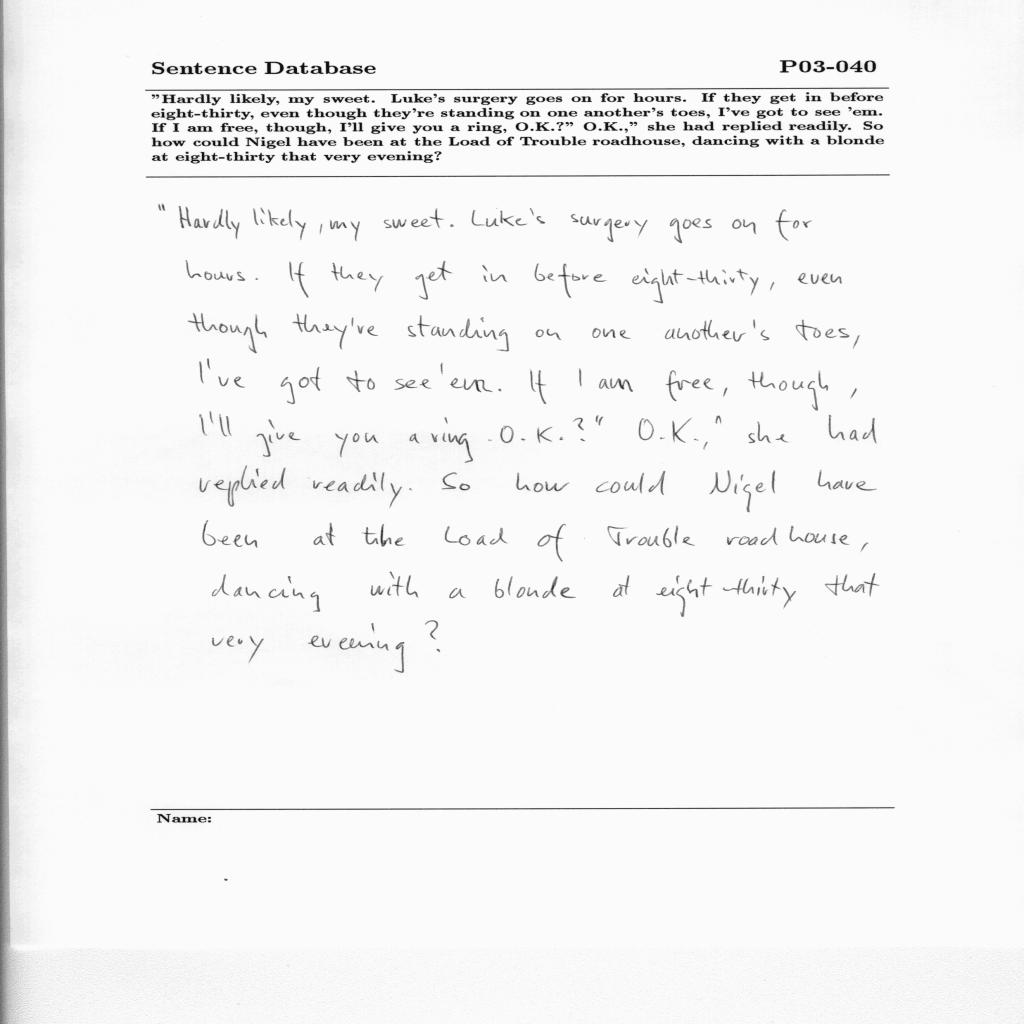 Sentence Database P03-040
"Hardly likely, my sweet. Luke's surgery goes on for hours. If they get in before
eight-thirty, even though they're standing on one another's toes, I've got to see 'em.
If I am free, though, I'll give you a ring, O.K.?" O.K.," she had replied readily. So
how could Nigel have been at the Load of Trouble roadhouse, dancing with a blonde
at eight-thirty that very evening?
"Hardly likely, my sweet. Luke's surgery goes on for
hours. If they get in before eight-thirty, even
though they're standing on one another's toes,
I've got to see 'em. If I am free, though,
I'll give you a ring. O.K.?" O.K.," she had
replied readily. So how could Nigel have
been at the Load of Trouble roadhouse,
dancing with a blonde at eight-thirty that
very evening?
Name: